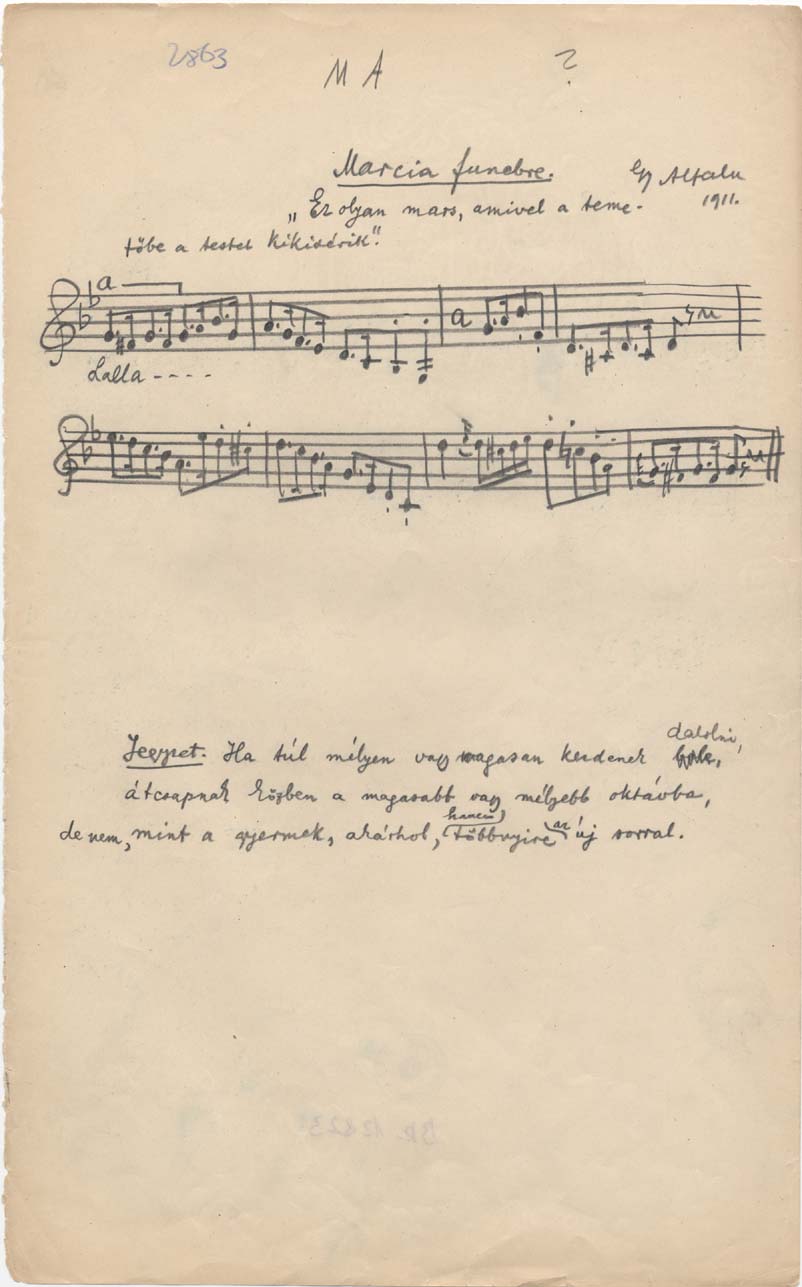 2863
M A ?
Marcia funebre.
1911.
„Ez olyan mars, amivel a teme-
tőbe a testet kikisérik".
a
a
Lalla - - - -
Jegyzet. Ha túl mélyen vagy magasan kezdenek dalolni,
átcsapnak közben a magasabb vagy mélyebb oktávba,
de nem, mint a gyermek, akárhol, hanem többnyire az új sorral.